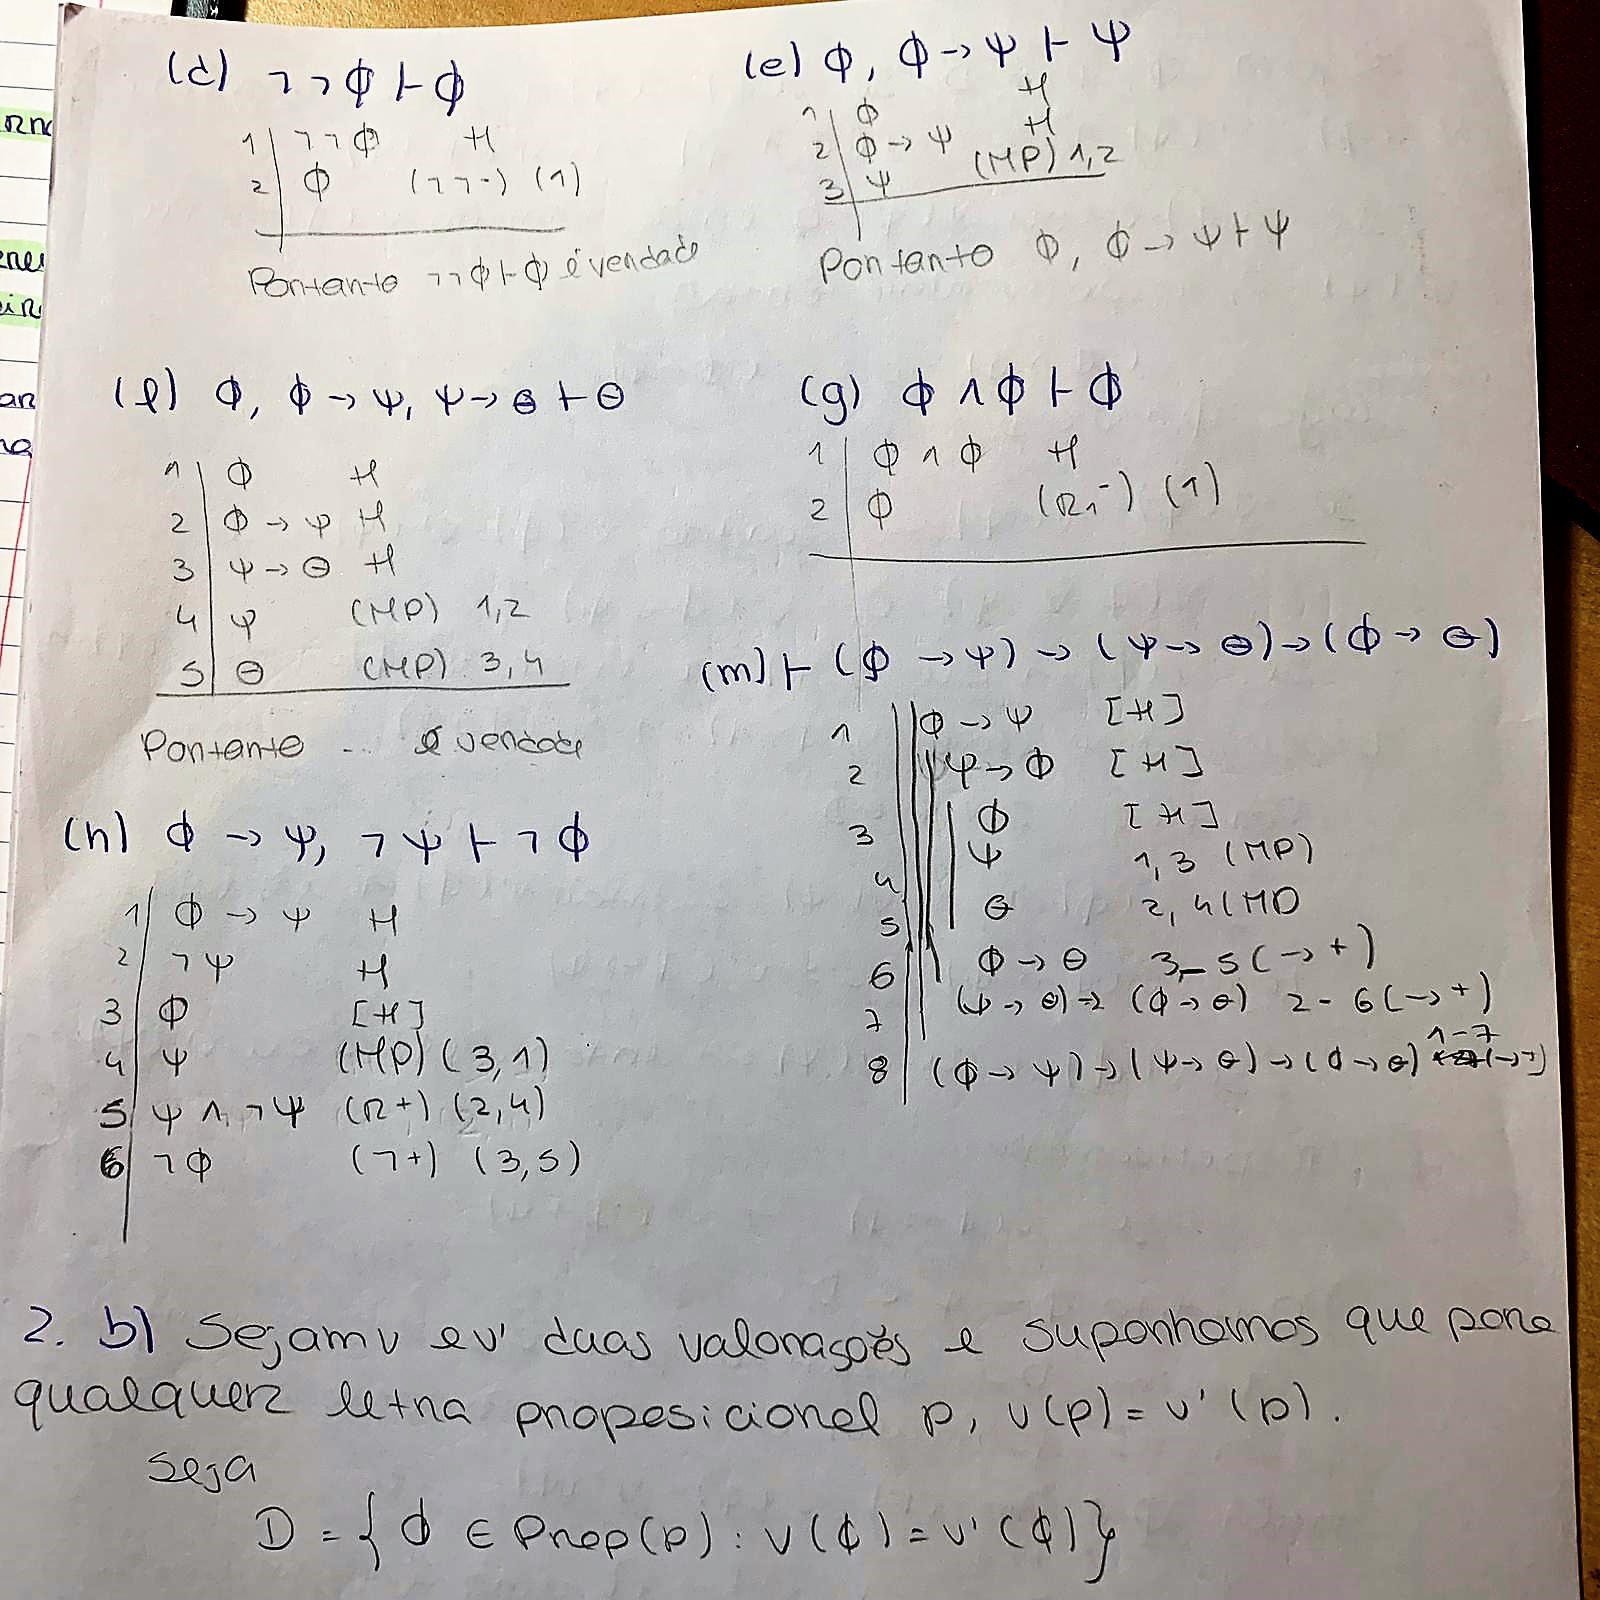 (d) ¬¬ϕ ⊢ ϕ
1 ¬¬ϕ H
2 ϕ (¬¬-) (1)
Portanto ¬¬ϕ ⊢ ϕ é verdade
(e) ϕ, ϕ → ψ ⊢ ψ
1 ϕ H
2 ϕ → ψ H
3 ψ (MP) 1,2
Portanto ϕ, ϕ → ψ ⊢ ψ
(f) ϕ, ϕ → ψ, ψ → θ ⊢ θ
1 ϕ H
2 ϕ → ψ H
3 ψ → θ H
4 ψ (MP) 1,2
5 θ (MP) 3,4
Portanto ... é verdade
(g) ϕ ∧ ϕ ⊢ ϕ
1 ϕ ∧ ϕ H
2 ϕ (R∧-) (1)
(h) ϕ → ψ, ¬ψ ⊢ ¬ϕ
1 ϕ → ψ H
2 ¬ψ H
3 ϕ [H]
4 ψ (MP) (3,1)
5 ψ ∧ ¬ψ (R+) (2,4)
6 ¬ϕ (¬+) (3,5)
(m) ⊢ (ϕ → ψ) → (ψ → θ) → (ϕ → θ)
1 ϕ → ψ [H]
2 ψ → ϕ [H]
3 ϕ [H]
4 ψ 1,3 (MP)
5 θ 2,4 (MP
6 ϕ → θ 3-5 (→+)
7 (ψ → θ) → (ϕ → θ) 2-6 (→+)
8 (ϕ → ψ) → (ψ → θ) → (ϕ → θ) 1-7 (→+)
2. b) Sejam v e v' duas valorações e suponhamos que para
qualquer letra proposicional p, v(p) = v'(p).
Seja
D = {ϕ ∈ Prop(p) : v(ϕ) = v'(ϕ)}